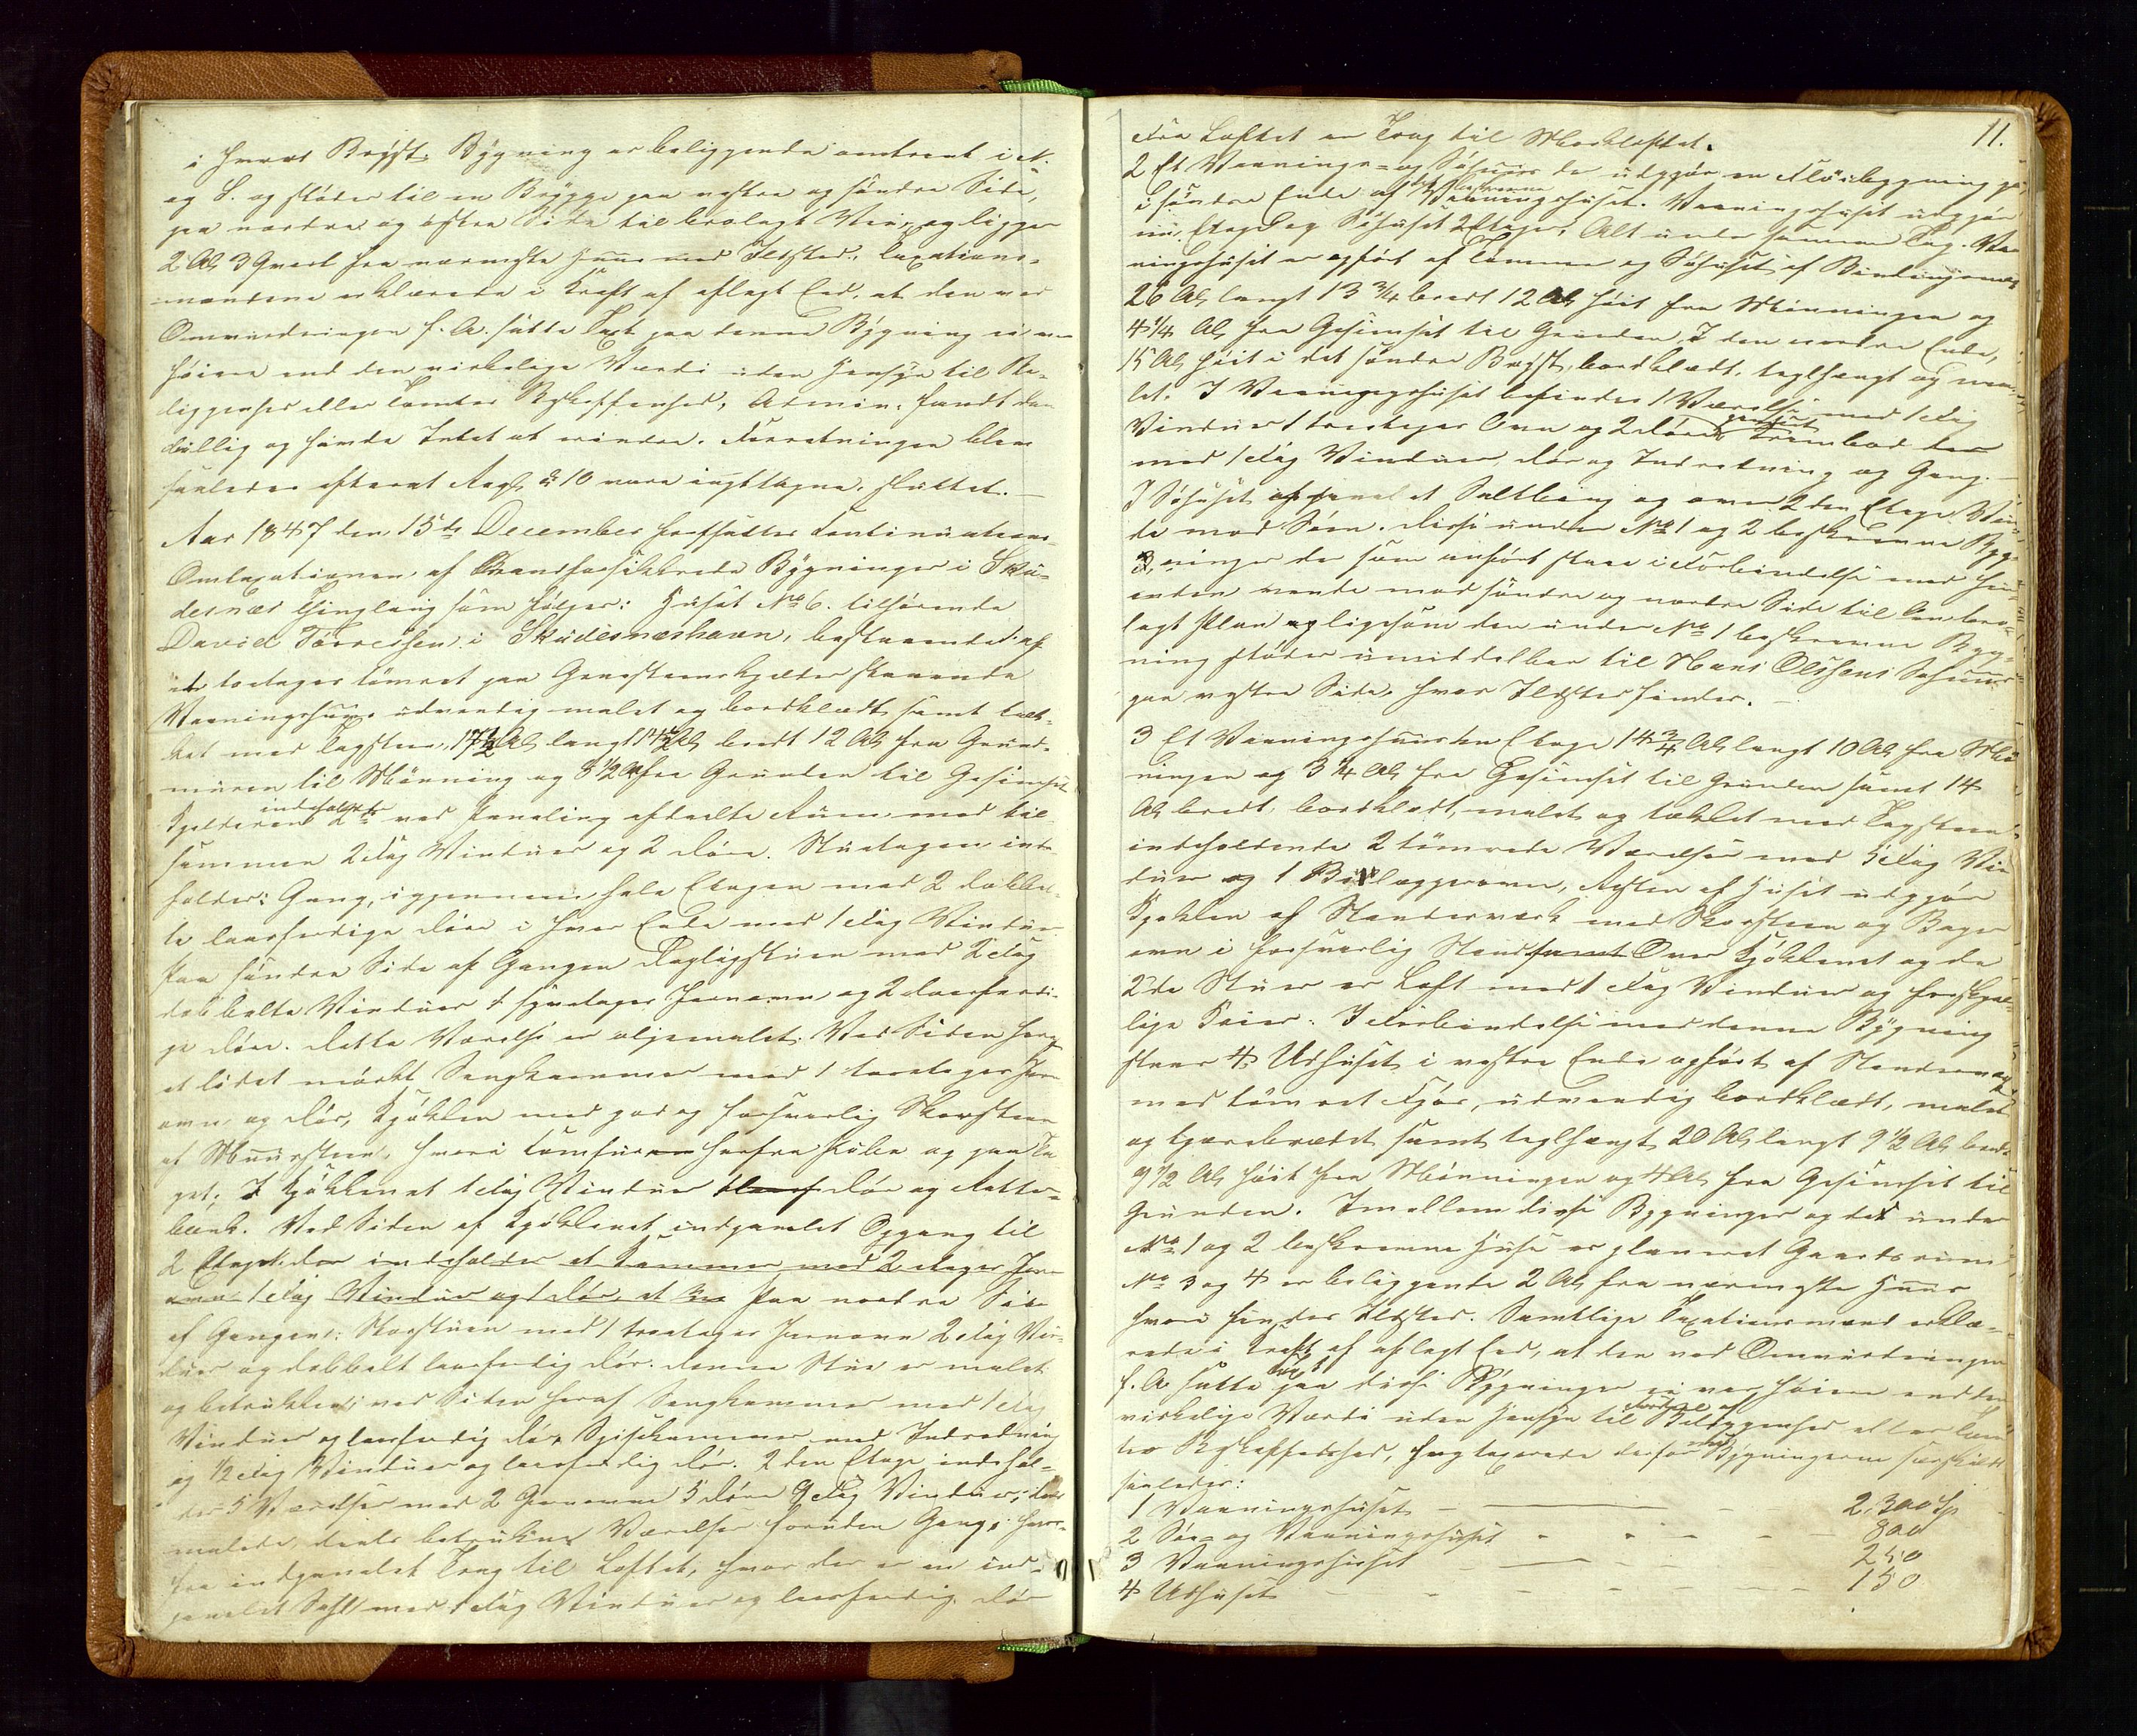 i hvert Bryst. Bygning er beliggende omtrent i N.
og S. og støder til en Brygge paa vestre og søndre Side,
paa nordre og østre Side til brolagt Vei, og ligger
2 Al 3 Qvart fra nærmeste Huus med Ildsted. Taxations-
mændene erklærede i Kraft af aflagt Eed, at den ved
Omvurderingen f. A. satte Taxt paa denne Bygning ei var
høiere end den virkelige Værdi uden Hensyn til Be-
liggenhed eller Tomtes Beskaffenhed; Admin. fandt den
billig og havde Intet at erindre. Forretningen blev
saaledes efterat Regl. § 10 være iagttagne, sluttet. —
Aar 1847 den 15de December fortsattes Continuations-
Omtaxationen af Brandforsikkrede Bygninger i Sku-
desnæs Thinglaug som følger: Huset No 6. tilhørende
David Tørresen i Skudesnæshavn, bestaaende af
et toetages tømret paa Graasteenskjelder staaende
Vaaningshuus udvendig malet og bordklædt samt tæk-
ket med Tagsteen, 17½ Al langt 14½ Al bredt 12 Al fra Grund-
muren til Mønning og 8 1/2 Al fra Grunden til Gesimset
Kjelderen indeholder 2de ved Paneling afdeelte Rum med til-
sammen 2 Fag Vinduer og 2 Døre. Stuetagen inde-
holder: Gang, igjennem hele Etagen med 2 dobbel-
te laasfærdige Døre i hver Ende med 1 Fag Vinduer
Paa søndre Side af Gangen Dagligstuen med 2 Fag
dobbelte Vinduer 1 Jernovn og 2 laasfærdi-
ge Døre. Dette Værelse er oljemalet. Ved Siden heraf
et lidet mørkt Sengkammer med 1 toetages Jern-
ovn og Dør, Kjøkken med god og forsvarlig Skorsteen
af Muursteen, hvori Comfur
get; I Kjøkkenet 1 Fag Vinduer Dør og Retter-
bænk. Ved Siden af Kjøkkenet indpanelet Opgang til
2 Etage der indeholder et Kammer med 2 etages Jern
ovn 1 Fag Vinduer og 1 Dør, et Paa nordre Side
af Gangen: Storstuen med 1 treetages Jernovn 2 Fag Vin-
duer og dobbelt laasfærdig Dør. Denne Stue er malet
og betrukken; ved Siden heraf Sengkammer med 1 Fag
Vinduer og laasfærdig Dør, Spisekammer med Indredning
og 1/2 Fag Vinduer og laasfærdig Dør. 2den Etage indehol-
der 5 Værelser med 2 Jernovne 5 Døre 9 Fag Vinduer; deels
malede, deels betrukne Værelser foruden Gang; hvor-
fra indpanelet Trap til Loftet, hvor der er en ind-
panelet Sahl med 1 Fag Vinduer og laasfærdig Dør
11.
Fra Loftet en Trap til Mørkloftet.
2 Et Vaanings- og Søhuus der udgjør en Fløibygning paa
i søndre Ende af det beskrevne Vaaningshuset. Vaaningshuset udgjør
een Etage og Søhuset 2 Etager, Alt under samme Tag. Vaa
ningshuset er opført af Tømmer og Søhuset af Bindingsværk
26 Al langt 13 3/4 bredt 12 Al høit fra Mønningen og
4 1/4 Al fra Gesimset til Grunden I den nordre Ende,
15 Al høit i det søndre Bryst, bordklædt, teglhængt og ma-
let. I Vaaningshuset befindes 1 Værelse med 1 Fag
Vinduer 1 treetages Ovn og 2 Døre, Krambod
med 1 Fag Vinduer, Dør og Indredning og Gang. —
I Søhuset Saltbing og oven 2den Etage Vin-
de mod Søen. Disse under No 1 og 2 beskrevne Byg-
ninger der som anført staae i Forbindelse med hin-
anden vende mod søndre og nordre Side til bro-
lagt Plan og ligesom den under No 1 beskrevne Byg-
ning støder umiddelbar til Hans Olssens Søhuus
paa vestre Side, hvor Ildsted findes. —
3 Et Vaaningshuus en Etage 14 3/4 Al langt 10 Al fra Møn
ningen og 3 1/4 Al fra Gesimset til Grunden samt 14
Al bredt, bordklædt, malet og tækket med Tagsteen
indeholdende 2 tømrede Værelser med 5 Fag Vin
duer og 1 Bilæggerovn, Resten af Huset udgjør
Kjøkken af Stænderværk med Skorsteen og Bager
ovn i forsvarlig Stand samt Over Kjøkkenet og de
2de Stuer er Loft med 1 Fag Vinduer og forskjel-
lige Leier. I Forbindelse med denne Bygning
staaer 4 Udhuset i vestre Ende opført af Stænderværk
med tømret Fjøs, udvendig bordklædt, malet
og tjærebrædet samt teglhængt 20 Al langt 9 1/2 Al bredt
9 1/2 Al høit fra Mønningen og 4 Al fra Gesimset til
Grunden. Imellem disse Bygninger og det under
No 1 og 2 beskrevne Huse er planeret Gaardsrum
No 3 og 4 er beliggende 2 Al fra nærmeste Huus
hvori findes Ildsted. Samtlige Taxationsmænd erklæ-
rede i Kraft af aflagt Eed, at den ved Omvurderingen
f. A. satte Taxt paa disse Bygninger ei var høiere end den
virkelige Værdi uden Hensyn til Fordeel af Beliggenhed eller Tom
tes Beskaffenhed, hvorfor taxerede derfor Bygningerne særskildt
saaledes:
1 Vaaningshuset — 2,300 Sp
2 Søe- og Vaaningshuset — 800
3 Vaaningshuset — 250
4 Udhuset — 150